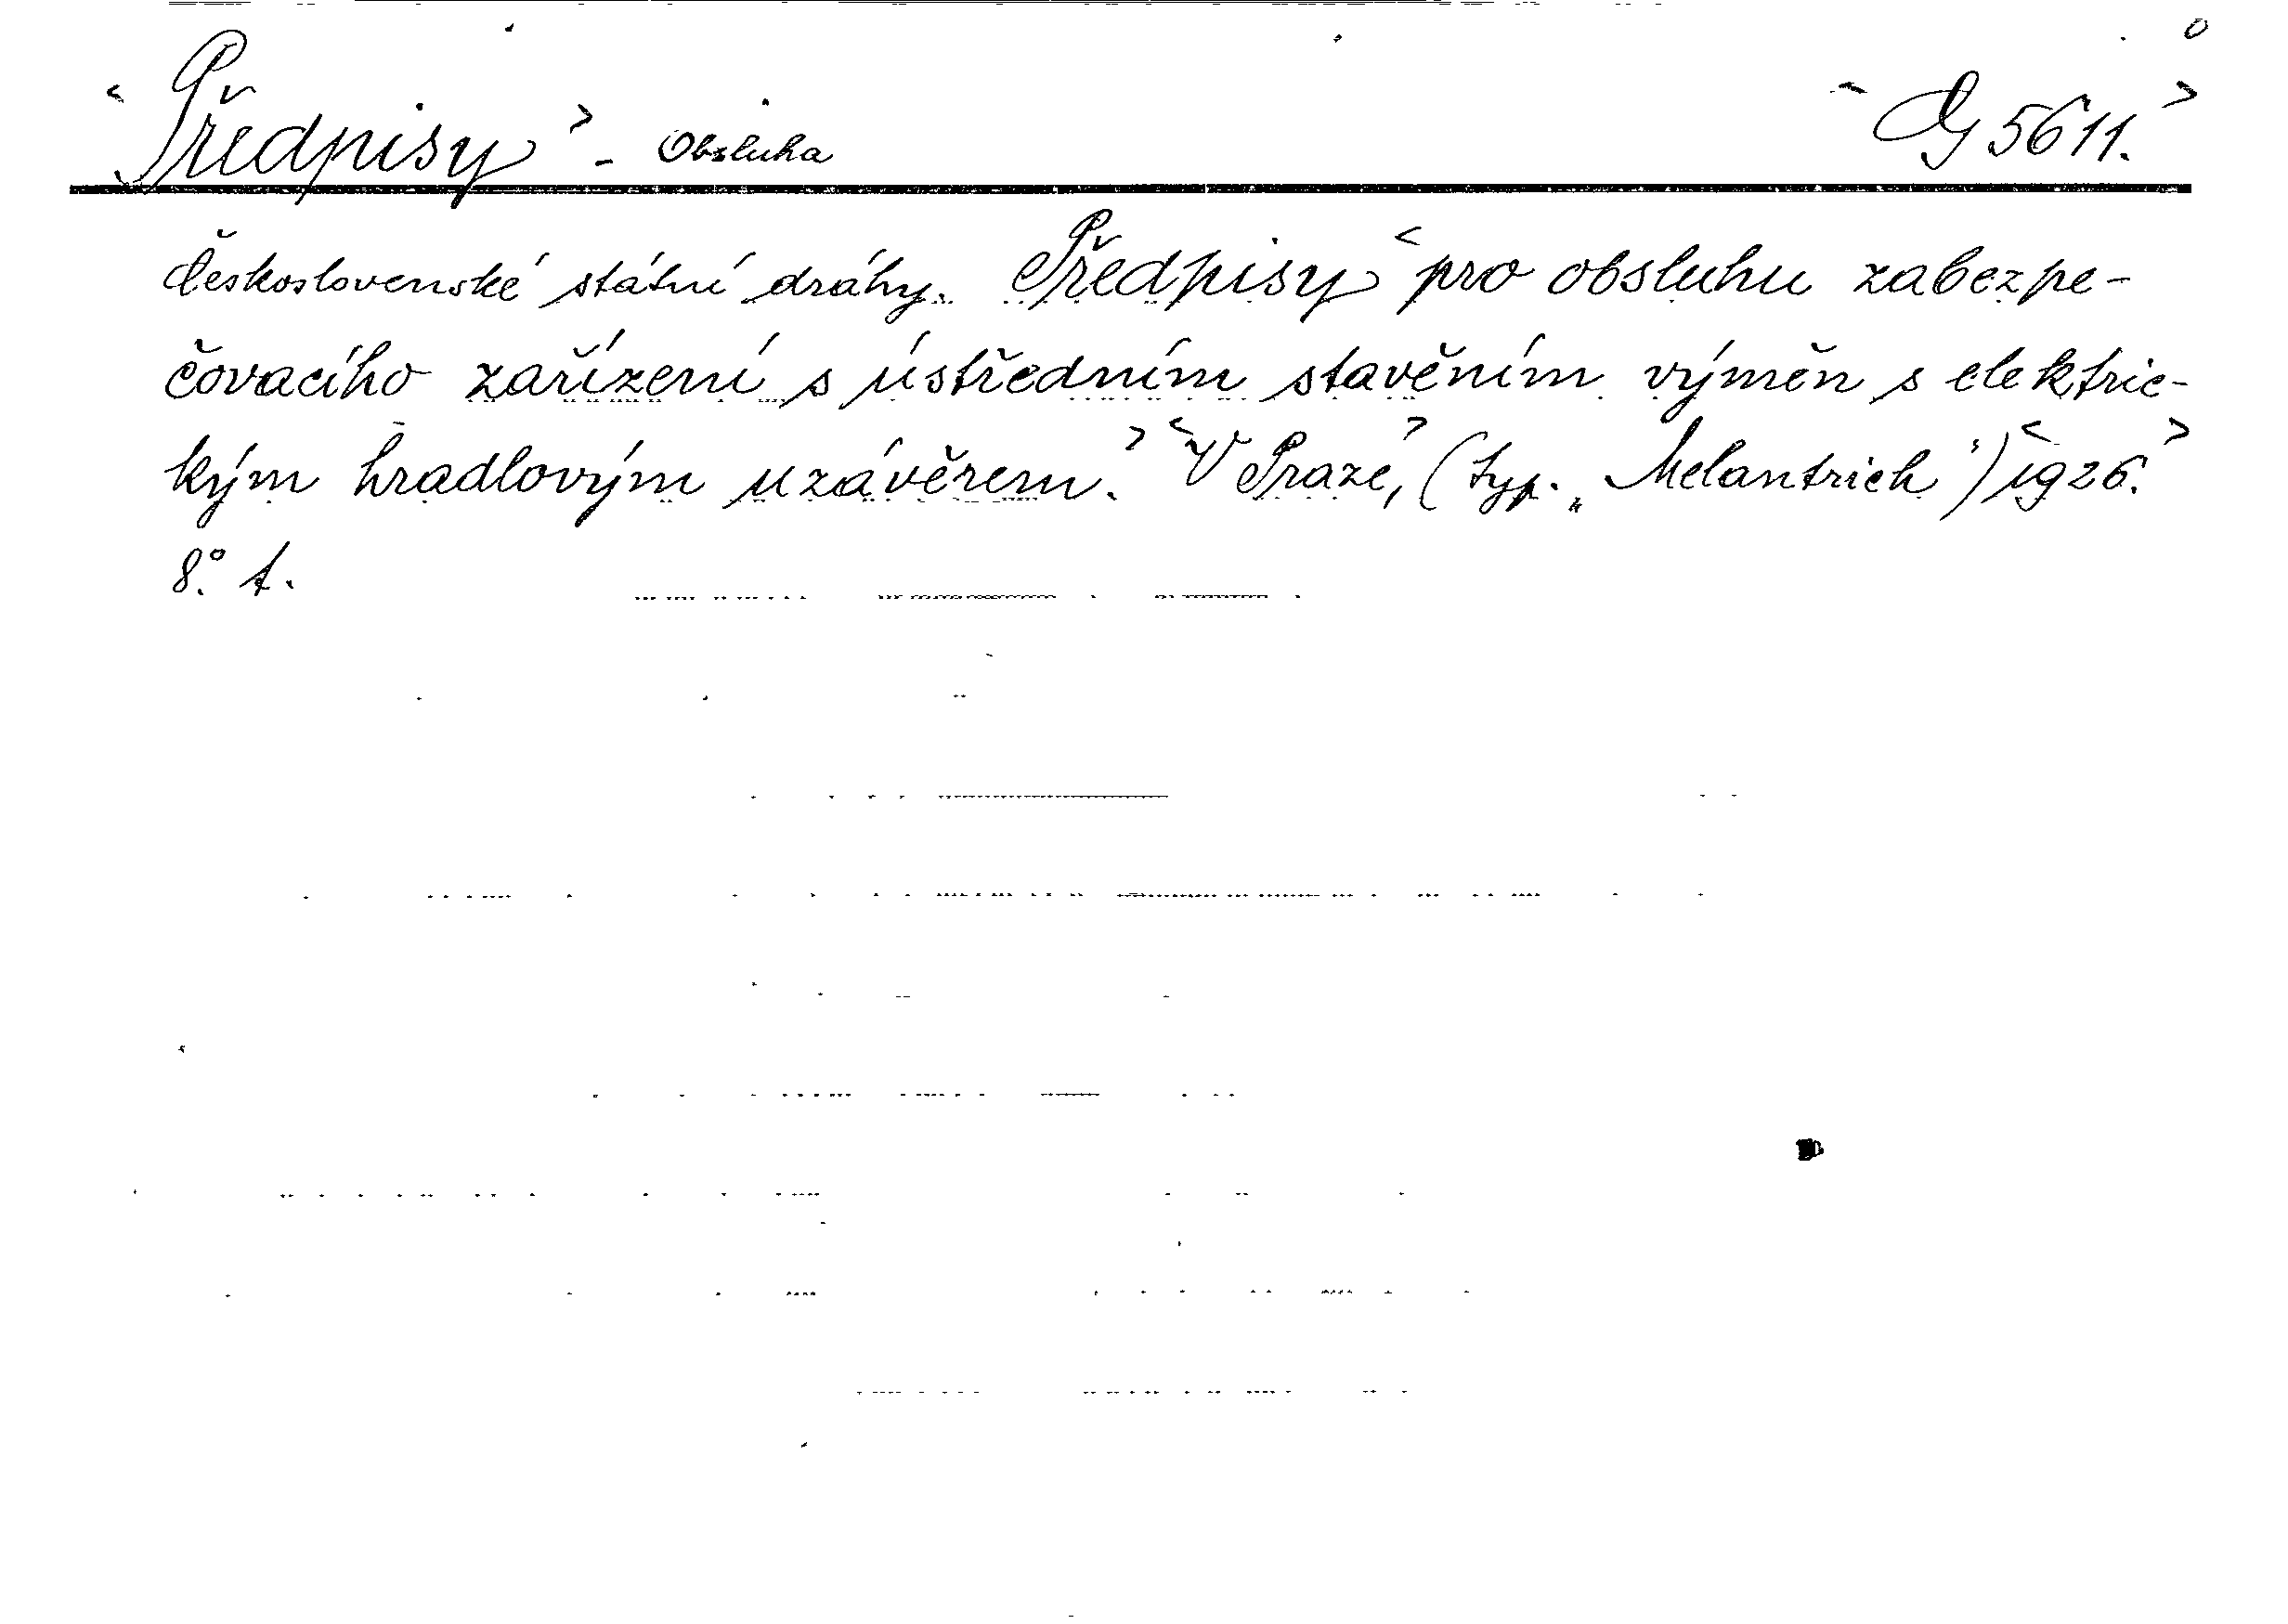 <Předpisy> - Obsluha <G 5611.>
Československé státní dráhy. Předpisy <pro obsluhu zabezpe-
čovacího zařízení s ústředním stavěním výměn s elektric-
kým hradlovým uzávěrem.> <V Praze,> (typ. „Melantrich") <1926.>
8.° t.